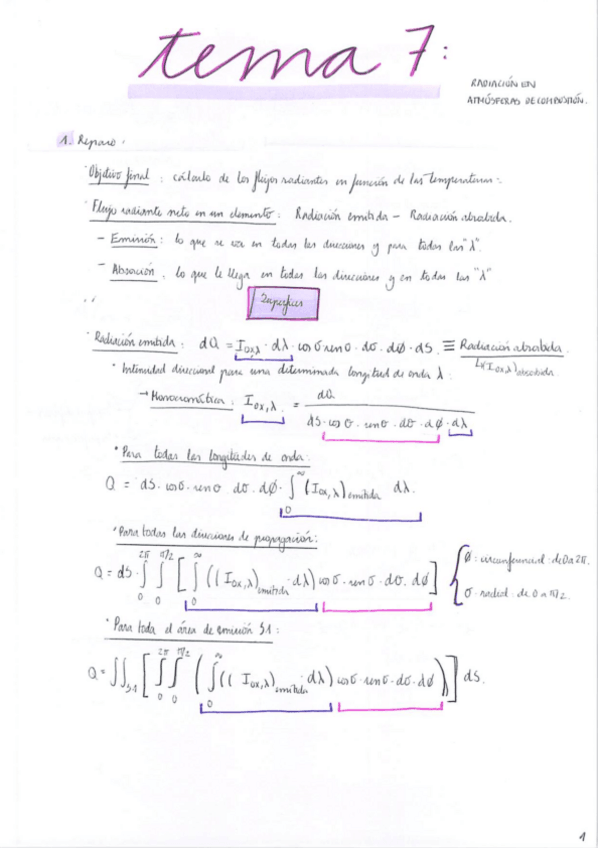 tema 7:
RADIACIÓN EN
ATMÓSFERAS DE COMBUSTIÓN.
1. Repaso:
· Objetivo final: cálculo de los flujos radiantes en función de las temperaturas.
· Flujo radiante neto en un elemento: Radiación emitida – Radiación absorbida.
– Emisión: lo que se va en todas las direcciones y para todas las "λ".
– Absorción: lo que le llega en todas las direcciones y en todas las "λ"
Superficies
· Radiación emitida: dQ = I₀ₓ,λ · dλ · cosσ · senσ · dσ · dø · dS ≡ Radiación absorbida.
(I₀ₓ,λ)absorbida
· Intensidad direccional para una determinada longitud de onda λ:
→ Monocromática: I₀ₓ,λ = dQ / (dS · cosσ · senσ · dσ · dø · dλ)
· Para todas las longitudes de onda:
Q = dS · cosσ · senσ dσ · dø · ∫₀^∞ (I₀ₓ,λ)emitida dλ.
· Para todas las direcciones de propagación:
Q = dS · ∫₀^2π ∫₀^π/2 [ ∫₀^∞ ((I₀ₓ,λ)emitida · dλ) cosσ · senσ · dσ · dø ]
ø: circunferencial: de 0 a 2π.
σ: radial: de 0 a π/2.
· Para toda el área de emisión S1:
Q = ∫∫S1 [ ∫₀^2π ∫₀^π/2 ( ∫₀^∞ (( I₀ₓ,λ)emitida · dλ) cosσ · senσ · dσ · dø ) ] dS.
1